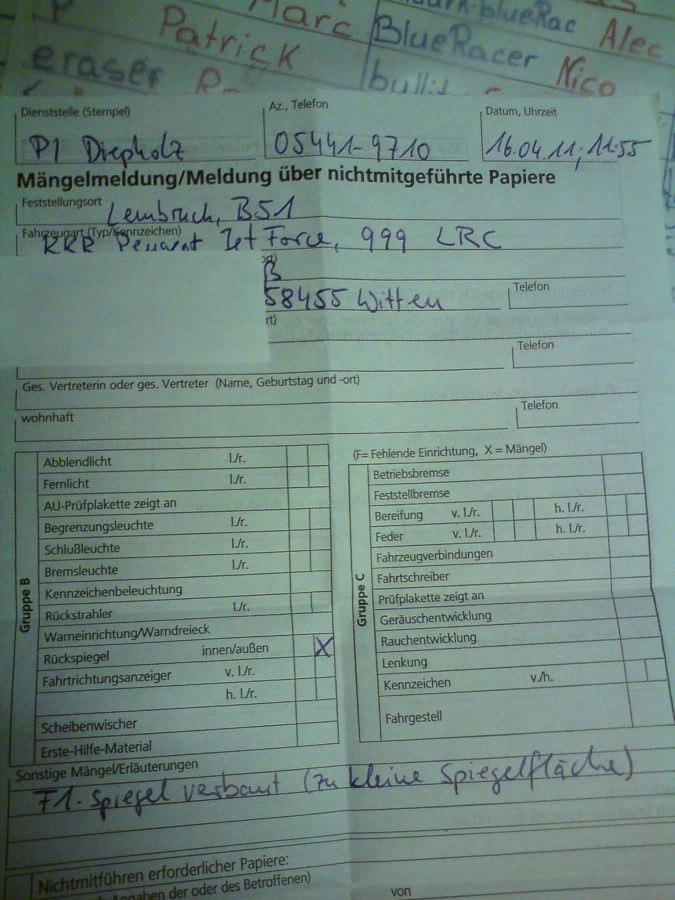 Marc
Patrick
eraser
BlueRac Alec
BlueRacer Nico
Dienststelle (Stempel) Az., Telefon Datum, Uhrzeit
PI Diepholz 05441-9710 16.04.11, 11:55
Mängelmeldung/Meldung über nichtmitgeführte Papiere
Feststellungsort
Lembruch, B51
Fahrzeugart (Typ/Kennzeichen)
KKR Jet Force, 999 LRC
ort)
58455 Witten Telefon
rt)
Telefon
Ges. Vertreterin oder ges. Vertreter (Name, Geburtstag und -ort)
wohnhaft Telefon
(F= Fehlende Einrichtung, X = Mängel)
Gruppe B
Abblendlicht l./r.
Fernlicht l./r.
AU-Prüfplakette zeigt an
Begrenzungsleuchte l./r.
Schlußleuchte l./r.
Bremsleuchte l./r.
Kennzeichenbeleuchtung
Rückstrahler l./r.
Warneinrichtung/Warndreieck
Rückspiegel innen/außen X
Fahrtrichtungsanzeiger v. l./r.
h. l./r.
Scheibenwischer
Erste-Hilfe-Material
Gruppe C
Betriebsbremse
Feststellbremse
Bereifung v. l./r. h. l./r.
Feder v. l./r. h. l./r.
Fahrzeugverbindungen
Fahrtschreiber
Prüfplakette zeigt an
Geräuschentwicklung
Rauchentwicklung
Lenkung
Kennzeichen v./h.
Fahrgestell
Sonstige Mängel/Erläuterungen
F1-Spiegel verbaut (zu kleine Spiegelfläche)
Nichtmitführen erforderlicher Papiere:
Angaben der oder des Betroffenen) von